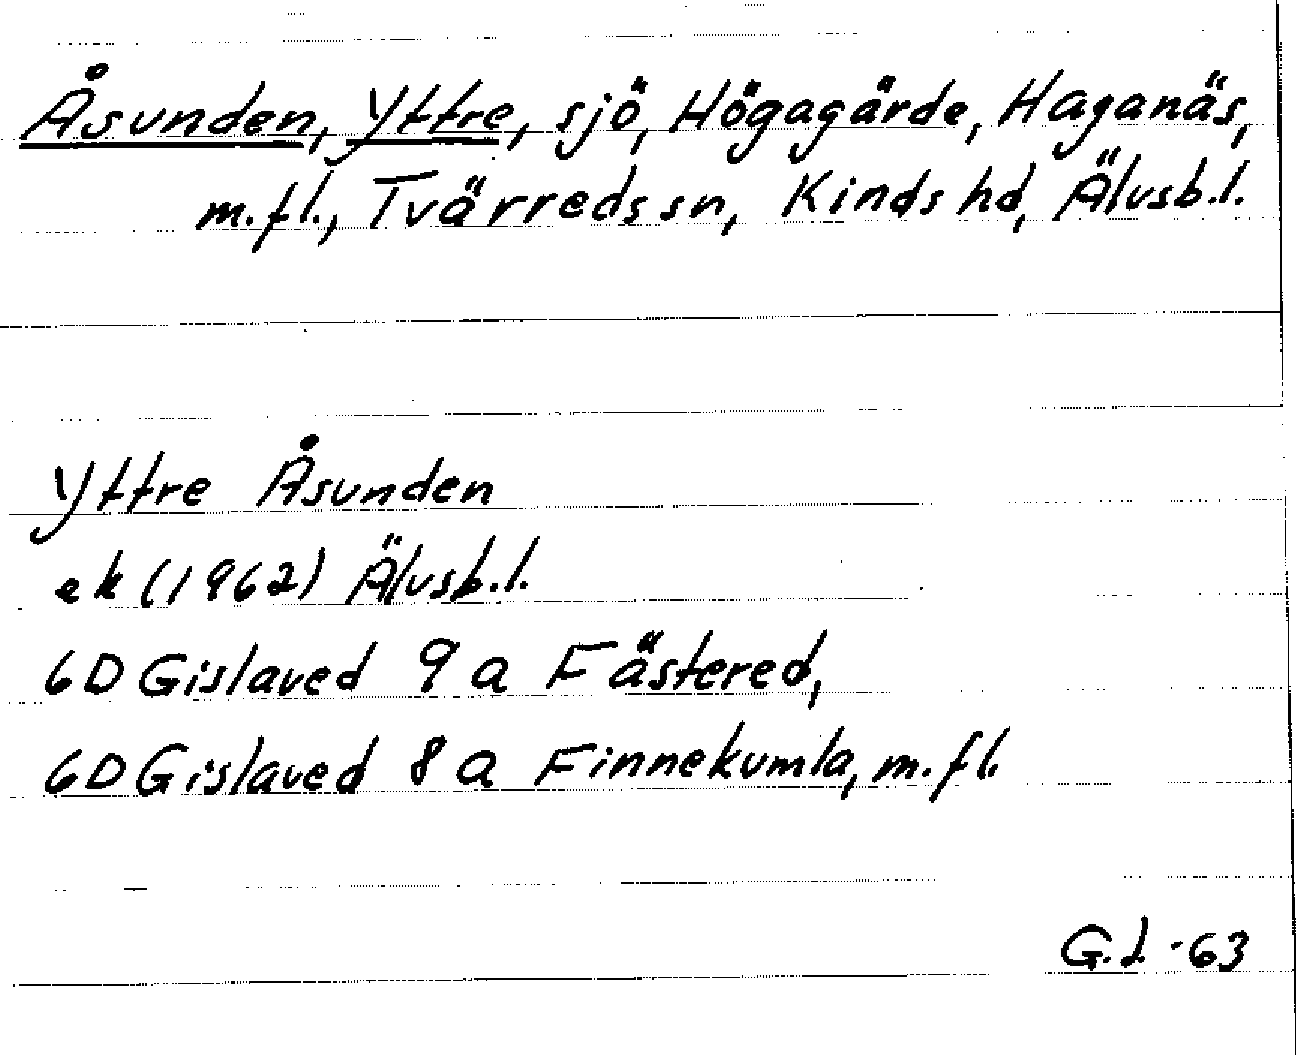 Åsunden, Yttre, sjö, Högagärde, Haganäs,
m.fl., Tvärreds sn, Kinds hd, Älvsb.l.
Yttre Åsunden
ek (1962) Älvsb.l.
6D Gislaved 9 a Fästered,
6D Gislaved 8 a Finnekumla, m.fl.
G.L -63